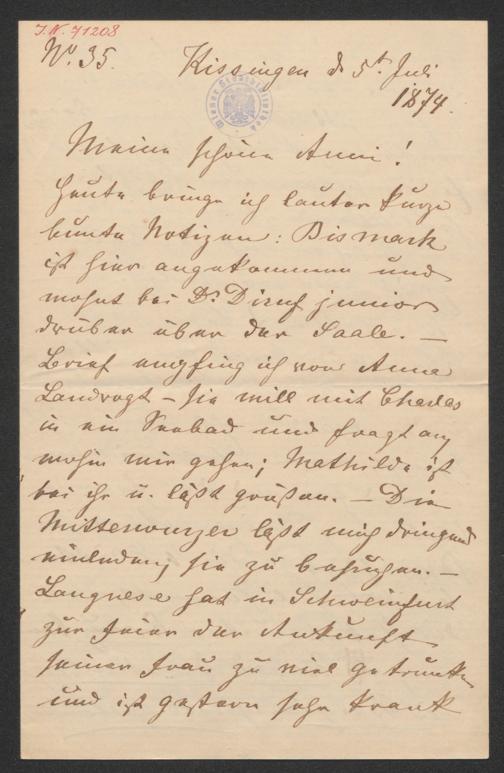 J.N. 71208
Nº 35.
Kissingen d. 5t Juli
1874.
Meine schöne Anni!
Heute bringe ich lauter kurze
bunte Notizen: Bismark
ist hier angekommen und
wohnt bei Dr Diruf junior
drüben über der Saale. —
Brief empfing ich von Anna
Landvogt – sie will mit Charles
in ein Seebad und fragt an,
wohin wir gehen; Mathilde ist
bei ihr u. läßt grüßen. — Die
Mitterwurzer läßt mich dringend
einladen, sie zu besuchen. —
Langnese hat in Schweinfurt
zur Feier der Ankunft
seiner Frau zu viel getrunken
und ist gestern sehr krank